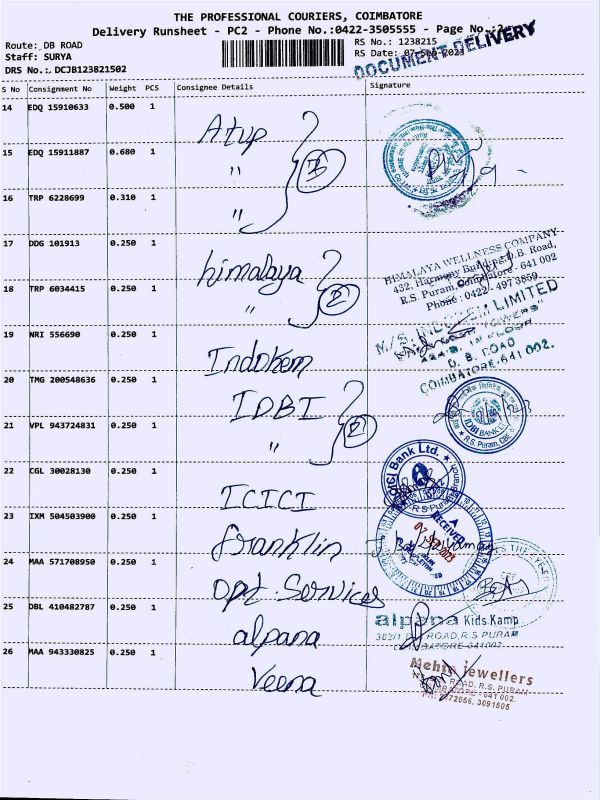 THE PROFESSIONAL COURIERS, COIMBATORE
Delivery Runsheet - PC2 - Phone No.:0422-3505555 - Page No.:2
Route: DB ROAD
RS No.: 1238215
Staff: SURYA
RS Date: 07-Sep-2023
DRS No.: DCJB123821502
DOCUMENT DELIVERY
S No Consignment No Weight PCS Consignee Details Signature
14 EDQ 15910633 0.500 1
15 EDQ 15911887 0.680 1 "
16 TRP 6228699 0.310 1 "
3
17 DDG 101913 0.250 1 himalaya
18 TRP 6034415 0.250 1 "
2
HIMALAYA WELLNESS COMPANY
432, Harmony Building, D.B. Road,
R.S. Puram, Coimbatore - 641 002
Phone : 0422 - 497 3859
19 NRI 556690 0.250 1 Indokem
M/S. INDOKEM LIMITED
TOWERS"
D. B. ROAD
COIMBATORE-641 002.
20 TMG 200548636 0.250 1 IDBI
21 VPL 943724831 0.250 1 "
2
IDBI BANK LTD
R.S. Puram, CBE
22 CGL 30028130 0.250 1 ICICI
ICICI Bank Ltd.
R S Puram
23 IXM 504503900 0.250 1 franklin T
RECEIVED
07 SEP 2023
24 MAA 571708950 0.250 1 opt. Services
25 DBL 410482787 0.250 1 alpana
alpana Kids Kamp
382/1 ROAD, R.S. PURAM
COIMBATORE-641002
26 MAA 943330825 0.250 1 Veena
Mehta jewellers
ROAD, R.S. PURAM
COIMBATORE - 641 002.
PH: 2472056, 3091505